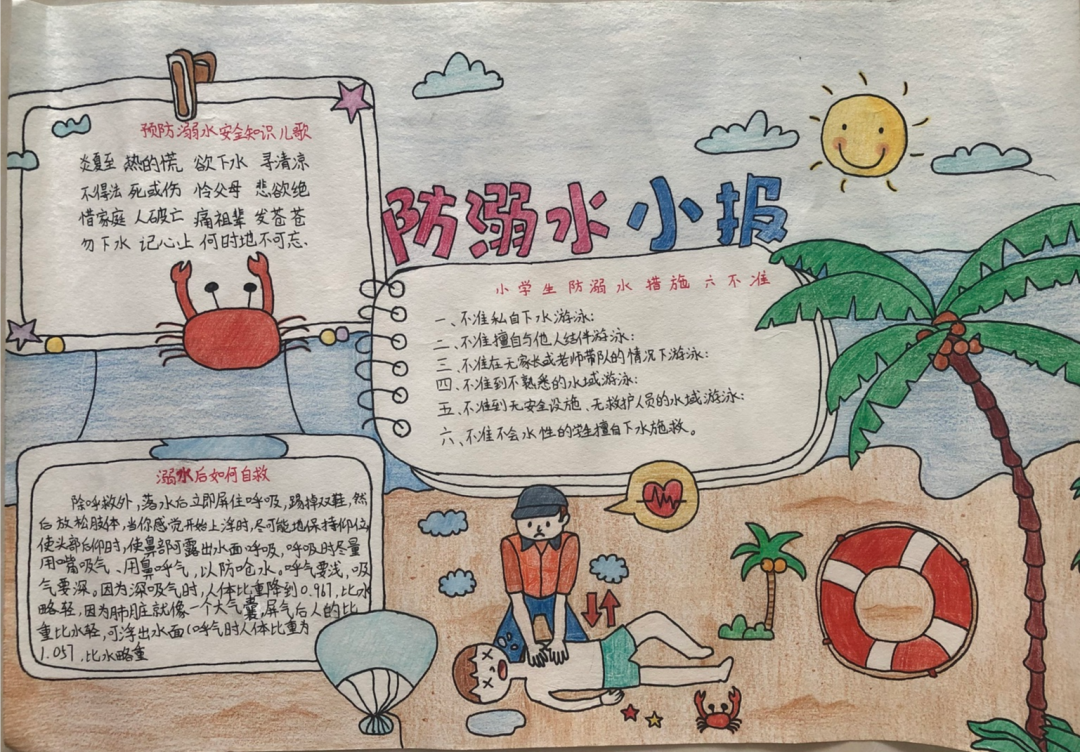 预防溺水安全知识儿歌
炎夏至 热的慌 欲下水 寻清凉
不得法 死或伤 怜父母 悲欲绝
惜家庭 人破亡 痛祖辈 发苍苍
勿下水 记心上 何时地不可忘.
防溺水小报
小学生防溺水措施六不准
一、不准私自下水游泳;
二、不准擅自与他人结伴游泳;
三、不准在无家长或老师带队的情况下游泳;
四、不准到不熟悉的水域游泳;
五、不准到无安全设施、无救护人员的水域游泳;
六、不准不会水性的学生擅自下水施救。
溺水后如何自救
除呼救外,落水后立即屏住呼吸,踢掉双鞋,然
后放松肢体,当你感觉开始上浮时,尽可能地保持仰位,
使头部后仰时,使鼻部可露出水面呼吸,呼吸时尽量
用嘴吸气、用鼻呼气,以防呛水。呼气要浅,吸
气要深。因为深吸气时,人体比重降到0.967,比水
略轻,因为肺脏就像一个大气囊,屏气后人的比
重比水轻,可浮出水面(呼气时人体比重为
1.057,比水略重